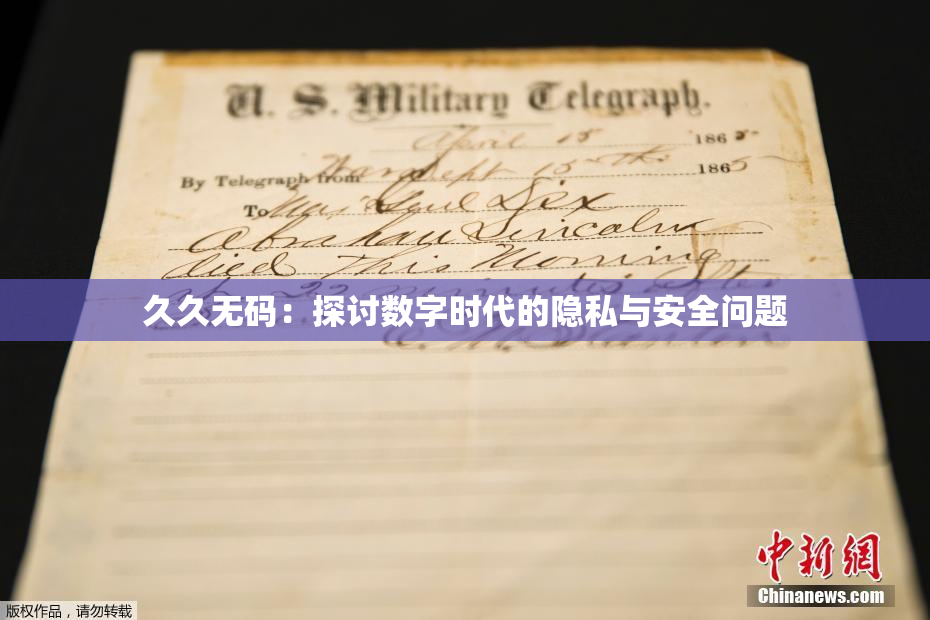 U. S. Military Telegraph.
April 15 1865
By Telegraph from War Dept 15th 1865
To Maj Genl Dix
Abraham Lincoln
died This Morning
at 22 minutes After
久久无码：探讨数字时代的隐私与安全问题
E. M. Stanton
中新網
Chinanews.com
版权作品，请勿转载